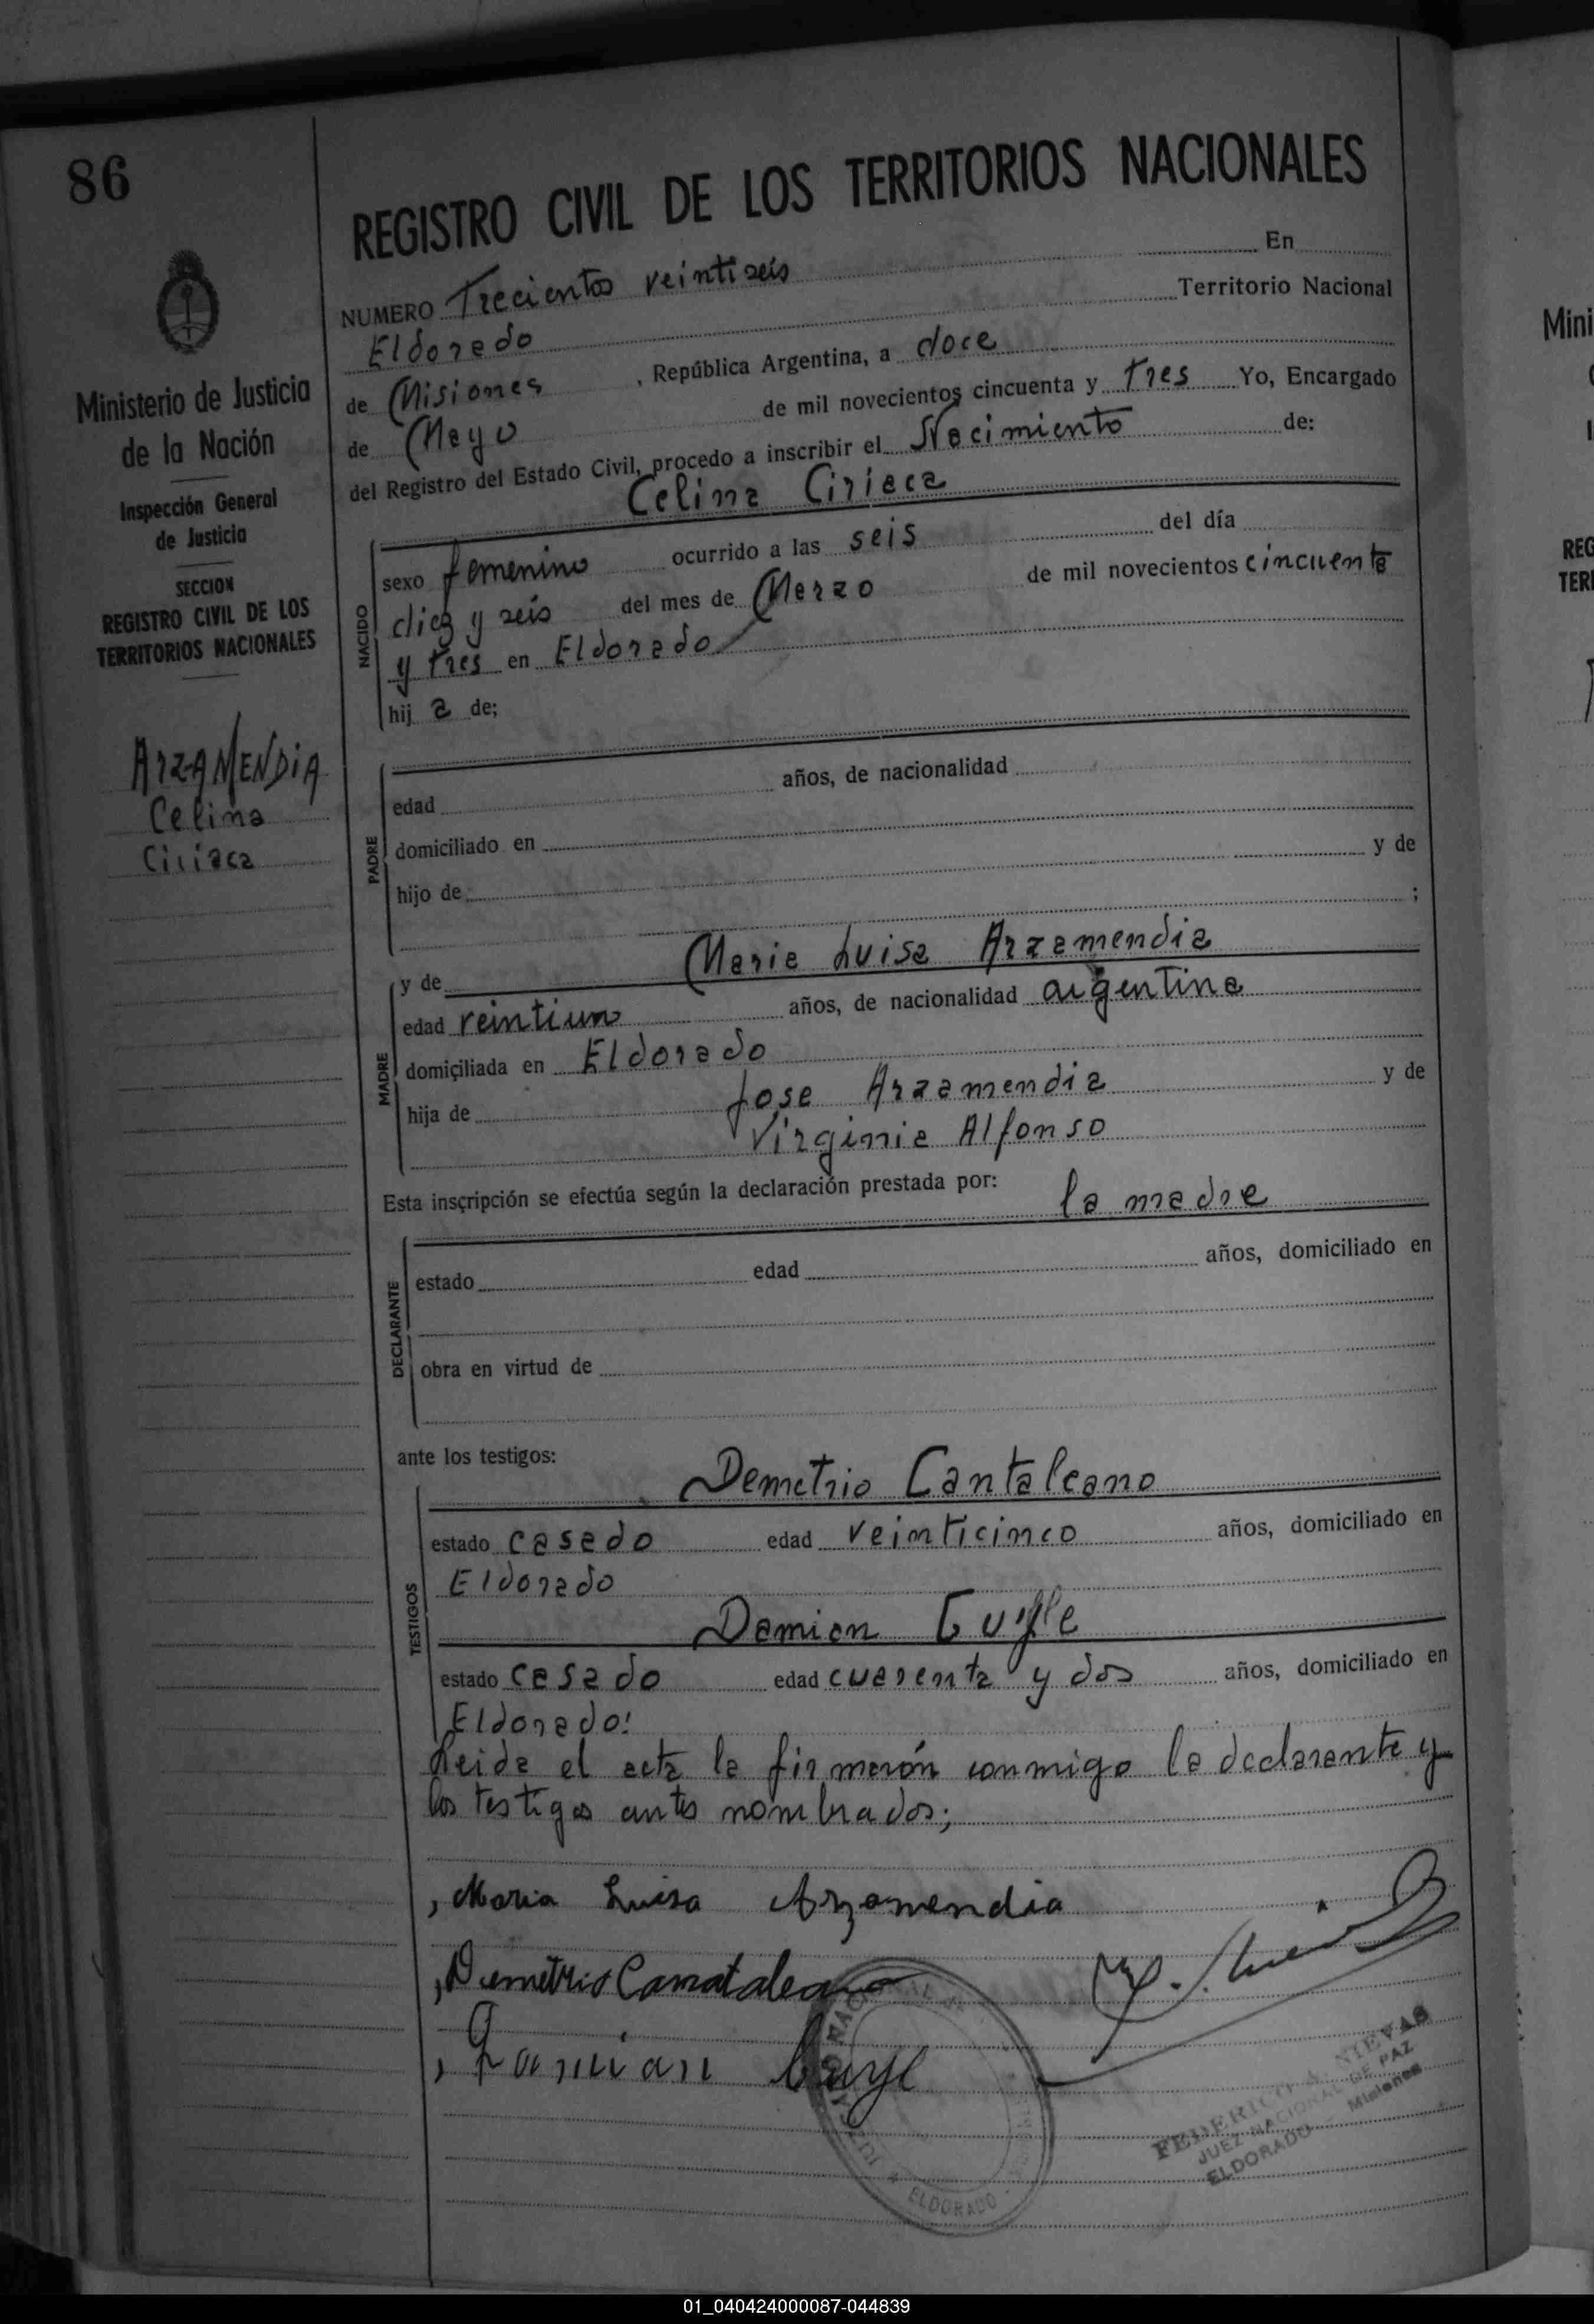 86
REGISTRO CIVIL DE LOS TERRITORIOS NACIONALES
Ministerio de Justicia
de la Nación
Inspección General
de Justicia
SECCION
REGISTRO CIVIL DE LOS
TERRITORIOS NACIONALES
ArzAMENDiA
Celina
Ciriaca
NUMERO Trecientos veintiseis En
Eldorado Territorio Nacional
de Misiones, República Argentina, a doce
de Mayo de mil novecientos cincuenta y tres Yo, Encargado
del Registro del Estado Civil, procedo a inscribir el Nacimiento de:
Celina Ciriaca
NACIDO
sexo femenino ocurrido a las seis del día
diez y seis del mes de Marzo de mil novecientos cincuenta
y tres en Eldorado
hij a de;
PADRE
edad años, de nacionalidad
domiciliado en
hijo de y de
;
MADRE
y de Maria Luisa Arzamendia
edad veintiun años, de nacionalidad argentina
domiciliada en Eldorado
hija de Jose Arzamendia y de
Virginia Alfonso
Esta inscripción se efectúa según la declaración prestada por: la madre
DECLARANTE
estado edad años, domiciliado en
obra en virtud de
ante los testigos:
Demetrio Cantaleano
TESTIGOS
estado casado edad veinticinco años, domiciliado en
Eldorado
Damian
estado casado edad cuarenta y dos años, domiciliado en
Eldorado!
Leida el acta la firmarón conmigo la declarante y
los testigos antes nombrados;
, Maria Luisa Arzamendia
, Demetrio
, Damian
ELDORADO
FEDERICO A. NIEVAS
JUEZ NACIONAL DE PAZ
ELDORADO - Misiones
Mini
REG
TER
01_040424000087-044839